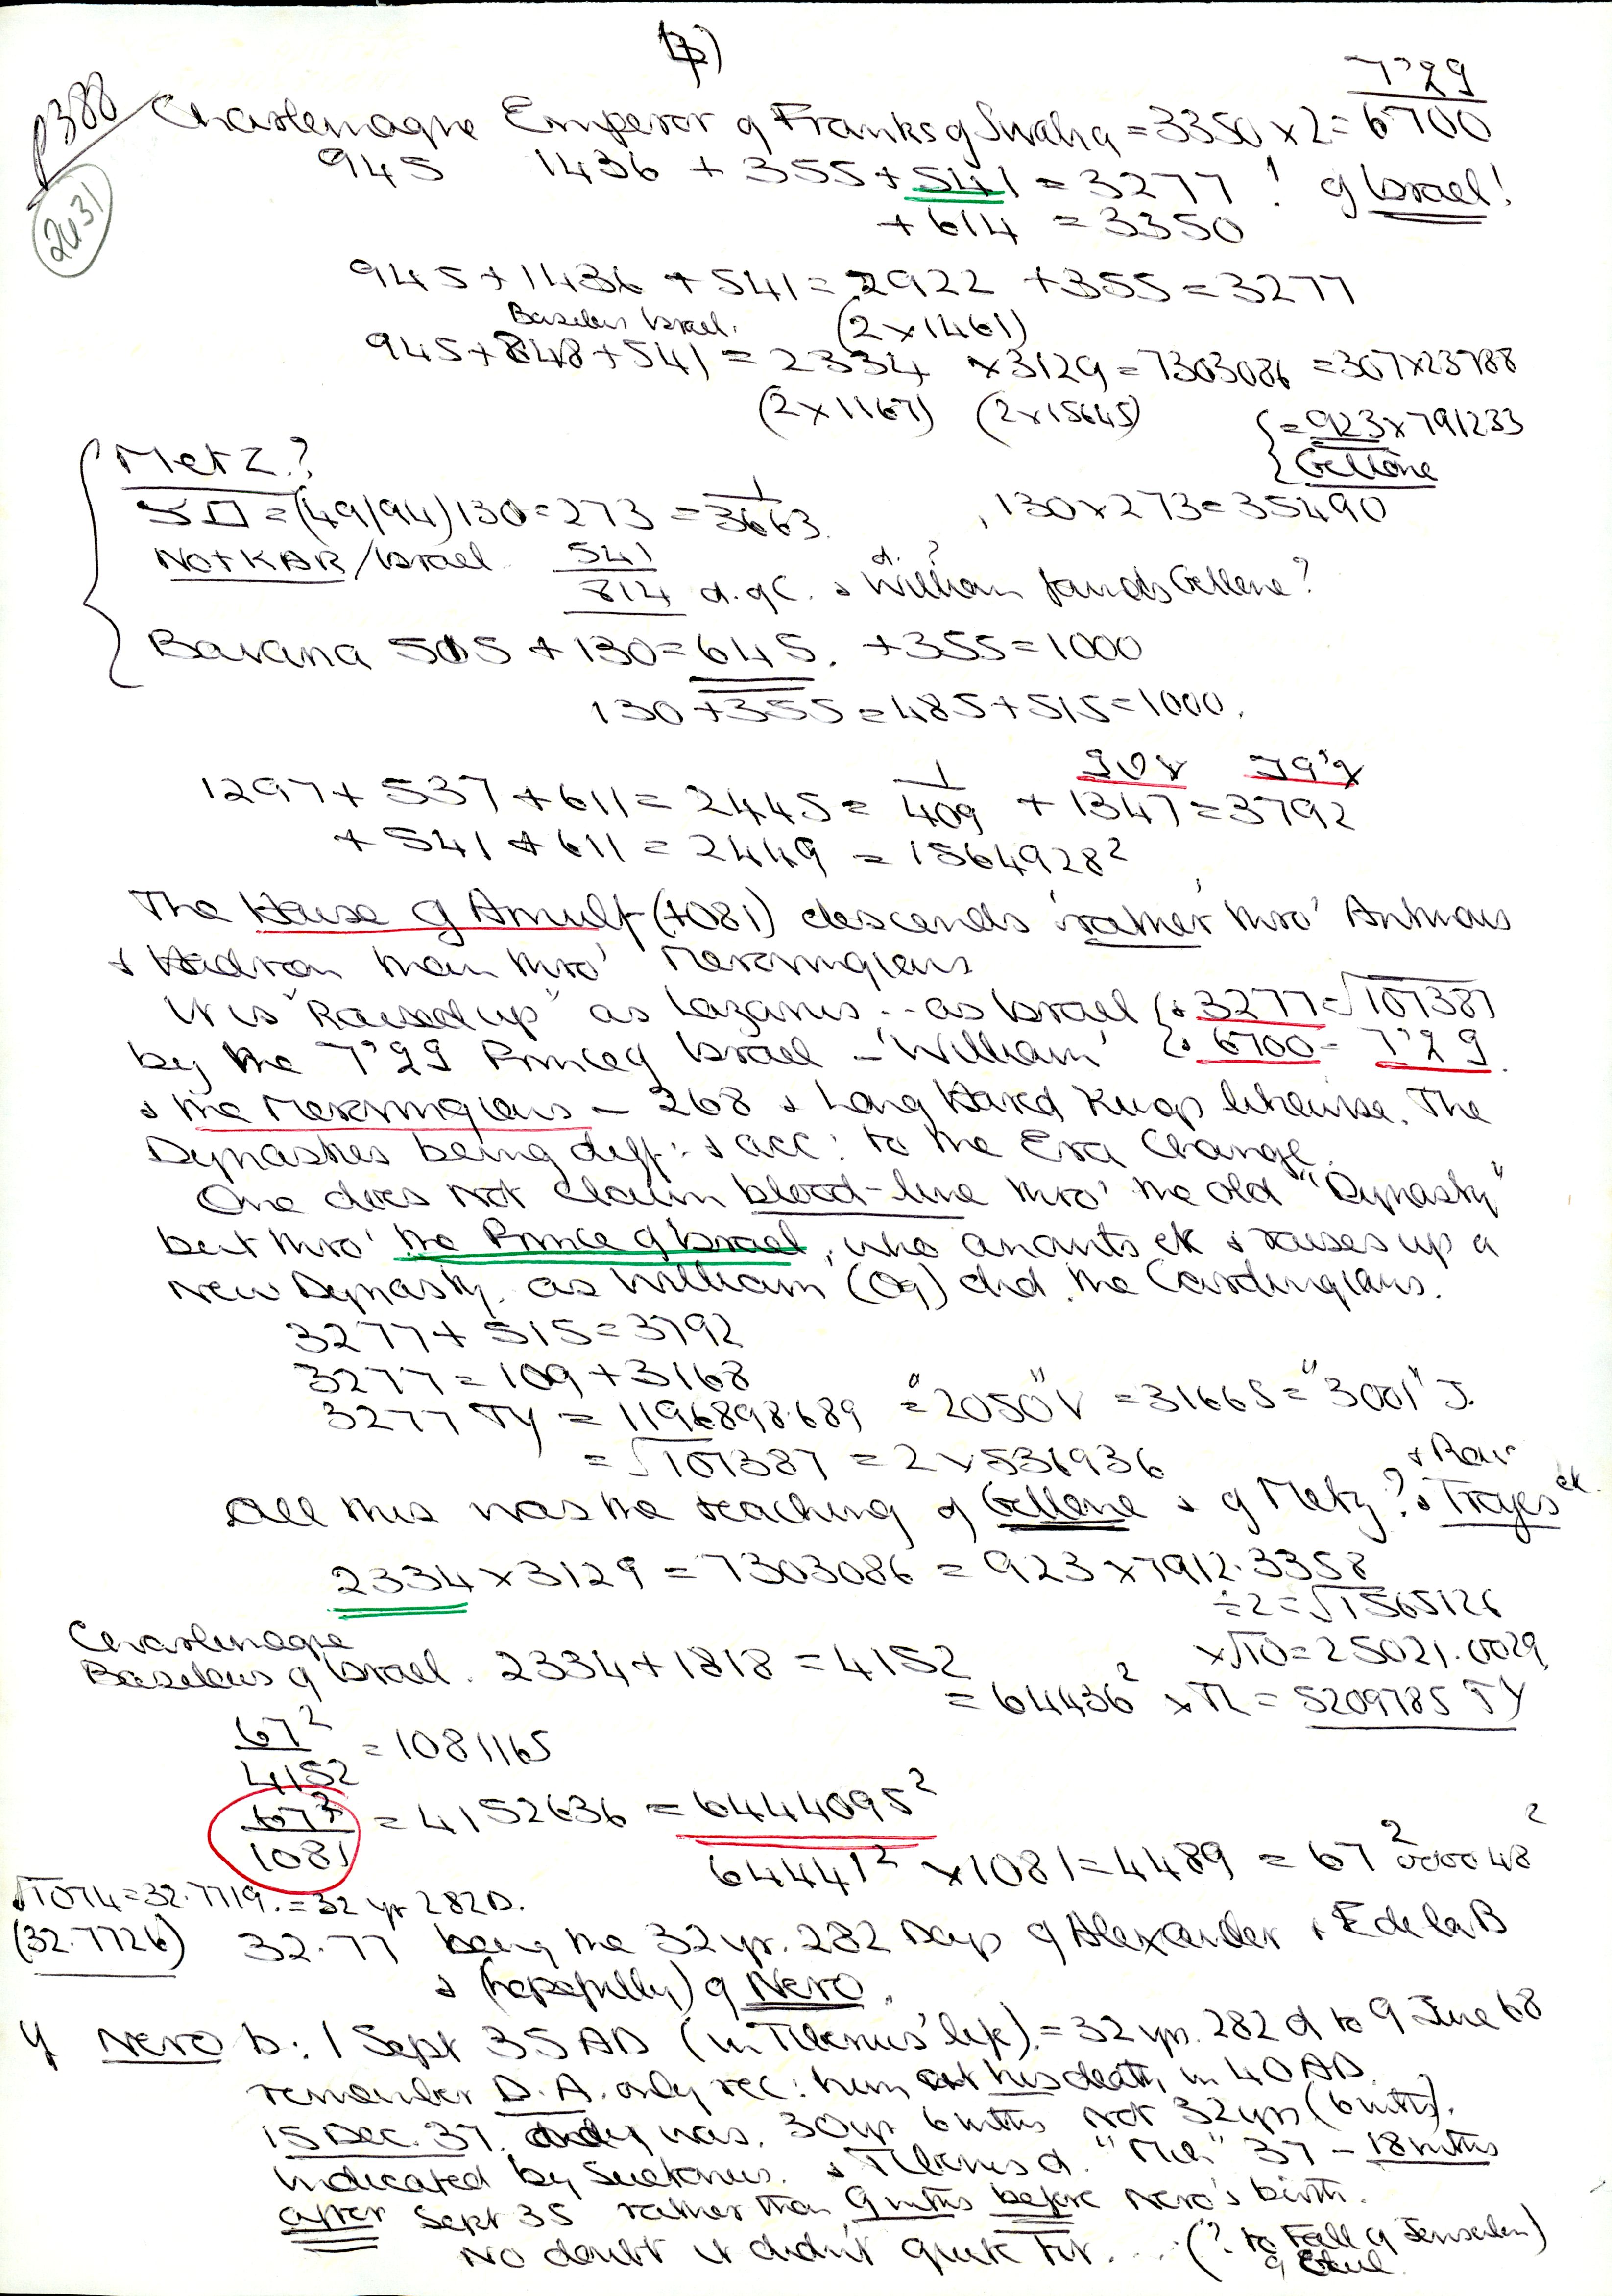 p388
2031
Charlemagne Emperor of Franks of = 3350 x 2 = 6700
945 1436 + 355 + 541 = 3277 ! of Israel!
+ 614 = 3350
945 + 1436 + 541 = 2922 + 355 = 3277
Basileus Israel. (2 x 1461)
945 + 848 + 541 = 2334 x 3129 = 7303086 = 307 x 23788
(2 x 1167) (2 x 15645)
= 923 x 791233
Gellone
Metz?
= (49/94) 130 = 273 = 1/3663. 130 x 273 = 35490
NotKAR/Israel 541
814 d. of C. & William founds Gellone?
Bavaria 515 + 130 = 645. + 355 = 1000
130 + 355 = 485 + 515 = 1000.
1297 + 537 + 611 = 2445 = 1/409 + 1347 = 3792
+ 541 + 611 = 2449 = 1564928²
The House of Arnulf (+081) descends 'rather' thro'
& Hadrian than thro' Merovingians
It is "Raised up" as Lazarus .. as Israel & 3277 = √107387
by the Prince of Israel - 'William' & 6700 =
& the Merovingians - 268 & Long Haired Kings likewise. The
Dynasties being diff: & acc: to the Era Change.
One does not claim blood-line thro' the old "Dynasty"
but thro' the Prince of Israel, who anoints etc & raises up a
New Dynasty. as William (Og) did the Carolingians.
3277 + 515 = 3792
3277 = 109 + 3168
3277 TY = 1196898.689 = "2050" V = 31665 = "3001" J.
= √107387 = 2 x 536936
All this was the teaching of Gellone & of Metz? & Troyes etc.
2334 x 3129 = 7303086 = 923 x 7912.3358
÷ 2 = √1565126
x √10 = 25021.0029
Charlemagne
Basileus of Israel. 2334 + 1818 = 4152
= 64436² x TL = 5209785 TY
67²/4152 = 1081165
67²/1081 = 4152636 = 6444095²
64441² x 1081 = 4489 = 67² 000048²
√1074 = 32.7719. = 32 yr 282D.
(32.7726) 32.77 being the 32 yr. 282 Days of Alexander & E de la B
& (hopefully) of Nero.
If Nero b: 1 Sept 35 AD (in Tiberius' life). = 32 yrs. 282 d to 9 June 68
remember D.A. only rec: him at his death, in 40 AD.
15 Dec. 37. only was. 30 yr 6 mths not 32 yrs (6 mths).
indicated by Suetonius. & Tiberius d. "Mch" 37 - 18 mths
after Sept 35 rather than 9 mths before Nero's birth.
No doubt it didn't quite fit.... (? to Fall of Jerusalem)